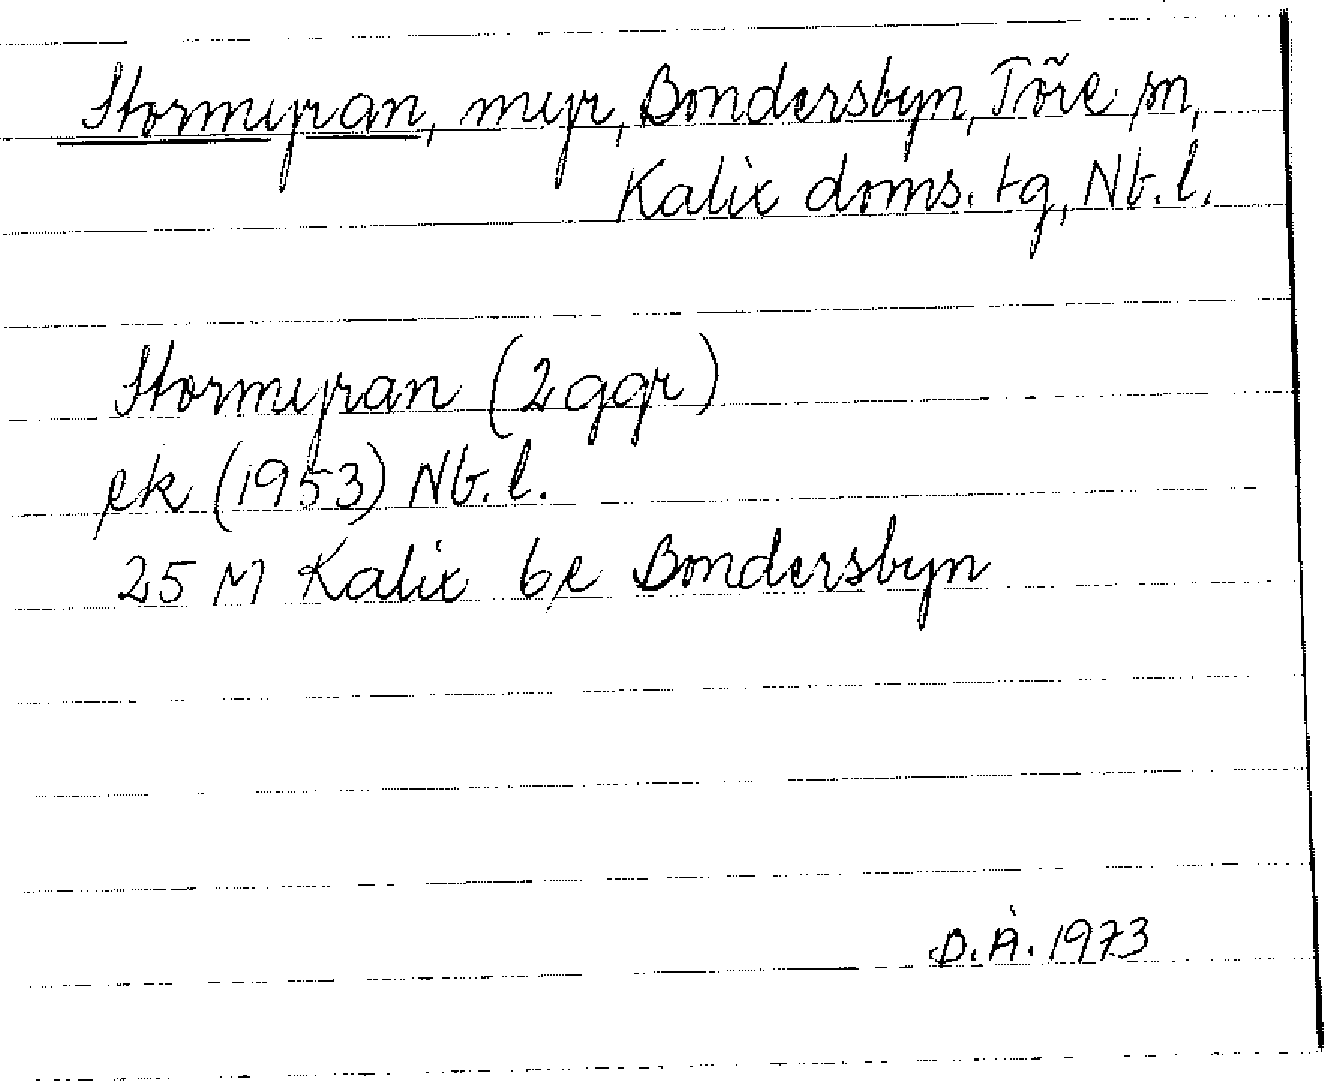 Stormyran, myr, Bondersbyn, Töre sn,
Kalix doms. tg, Nb. l.
Stormyran (2 ggr)
ek (1953) Nb. l.
25 M Kalix be Bondersbyn
D. Å. 1973